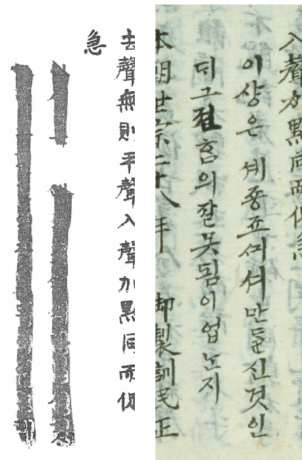 去聲無則平聲入聲加點同而促
急
入聲加點同而促
이상은 세종죠에셔 만들신것인
디그 험의잘못됨이업노지
本朝世宗二十八年 御製訓民正